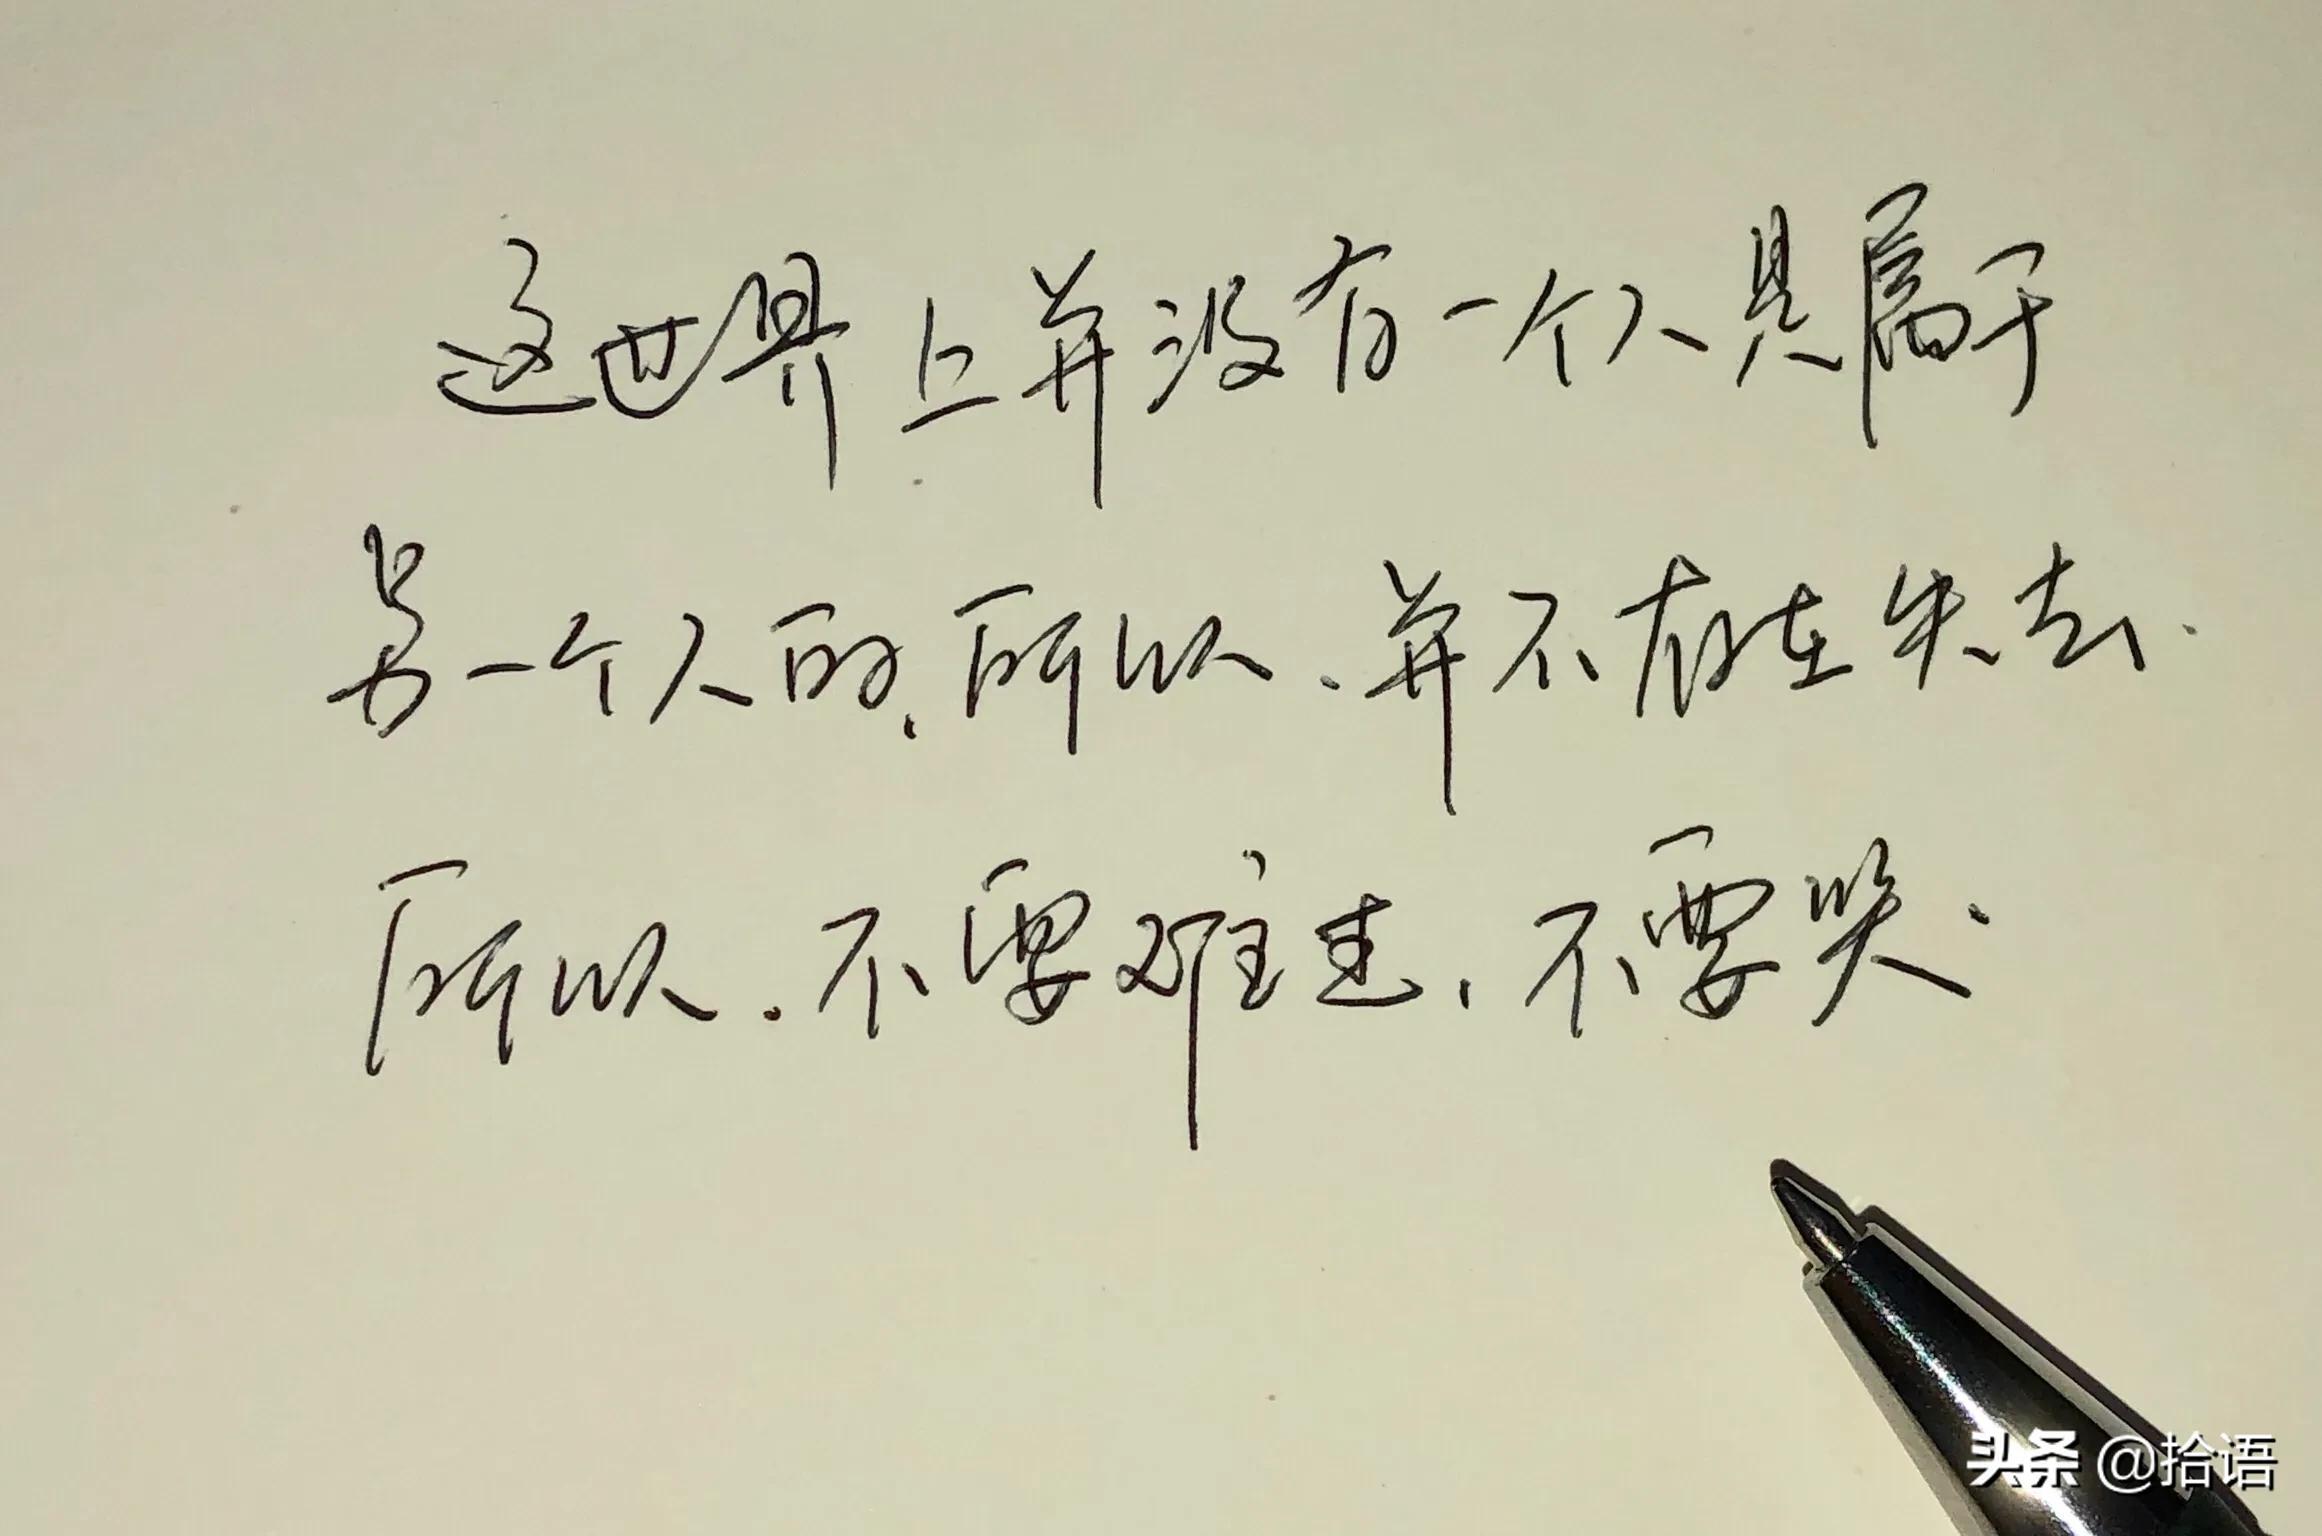 这世界上并没有一个人是属于
另一个人的,所以,并不存在失去.
所以,不要难过,不要哭.
头条 @拾语